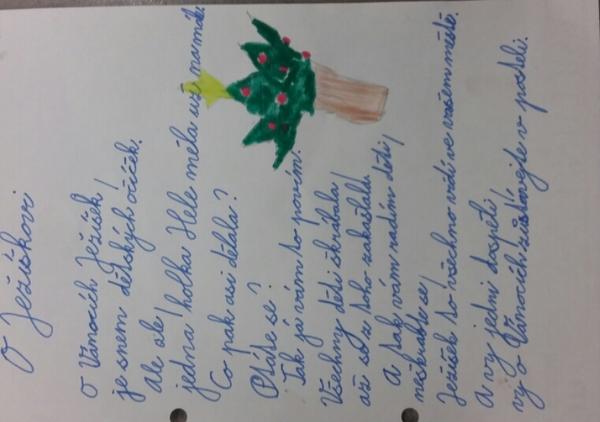 O Ježíškovi
O Vánocích Ježíšek
je snem dětských očíček.
Ale ale!
jedna holka Hele měla už namále.
Co pak asi dělala?
Ptáte se?
Tak já vám to povím.
Všechny děti škrábala!
až se z toho zakaštala
A pak vám radím děti!
neškrabte se!
Ježíšek to všechno vidí ve vašem městě.
A vy jedni dospělí
vy o Vánocích zůstávejte v posteli.